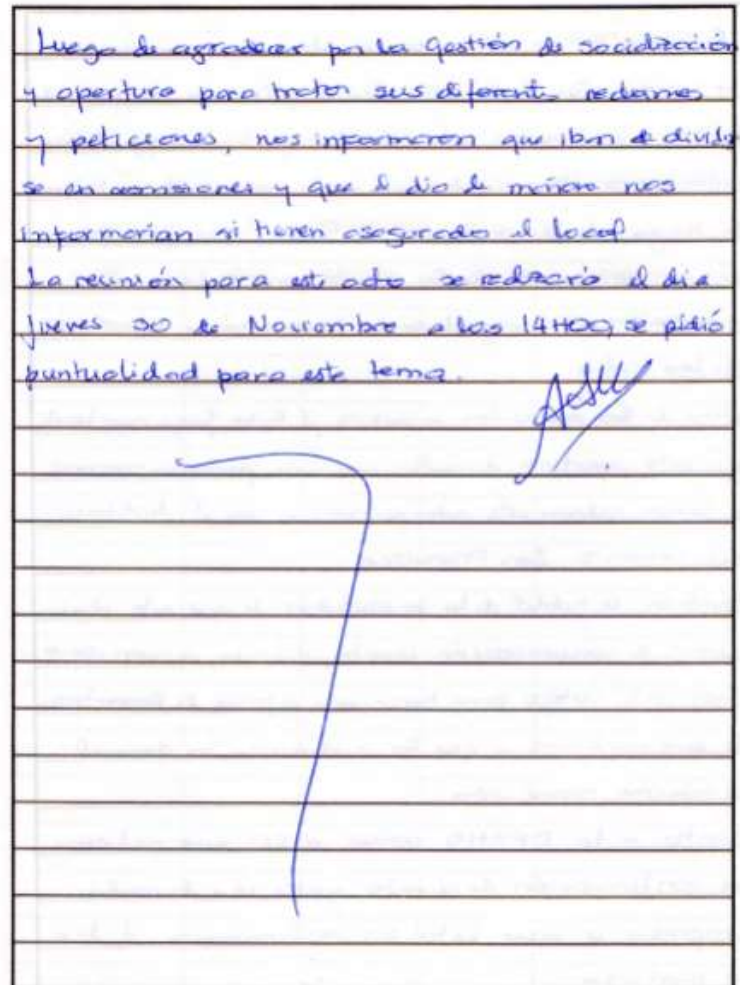 Luego de agradecer por la Gestión de socialización
y apertura para tratar sus diferent. reclamos
y peticiones, nos informaron que iban a dividir
se en comisiones y que el dia de mañana nos
informarian si tienen asegurado el local
La reunión para este acto se realizará el dia
jueves 30 de Noviembre a las 14H00, se pidió
puntualidad para este tema.